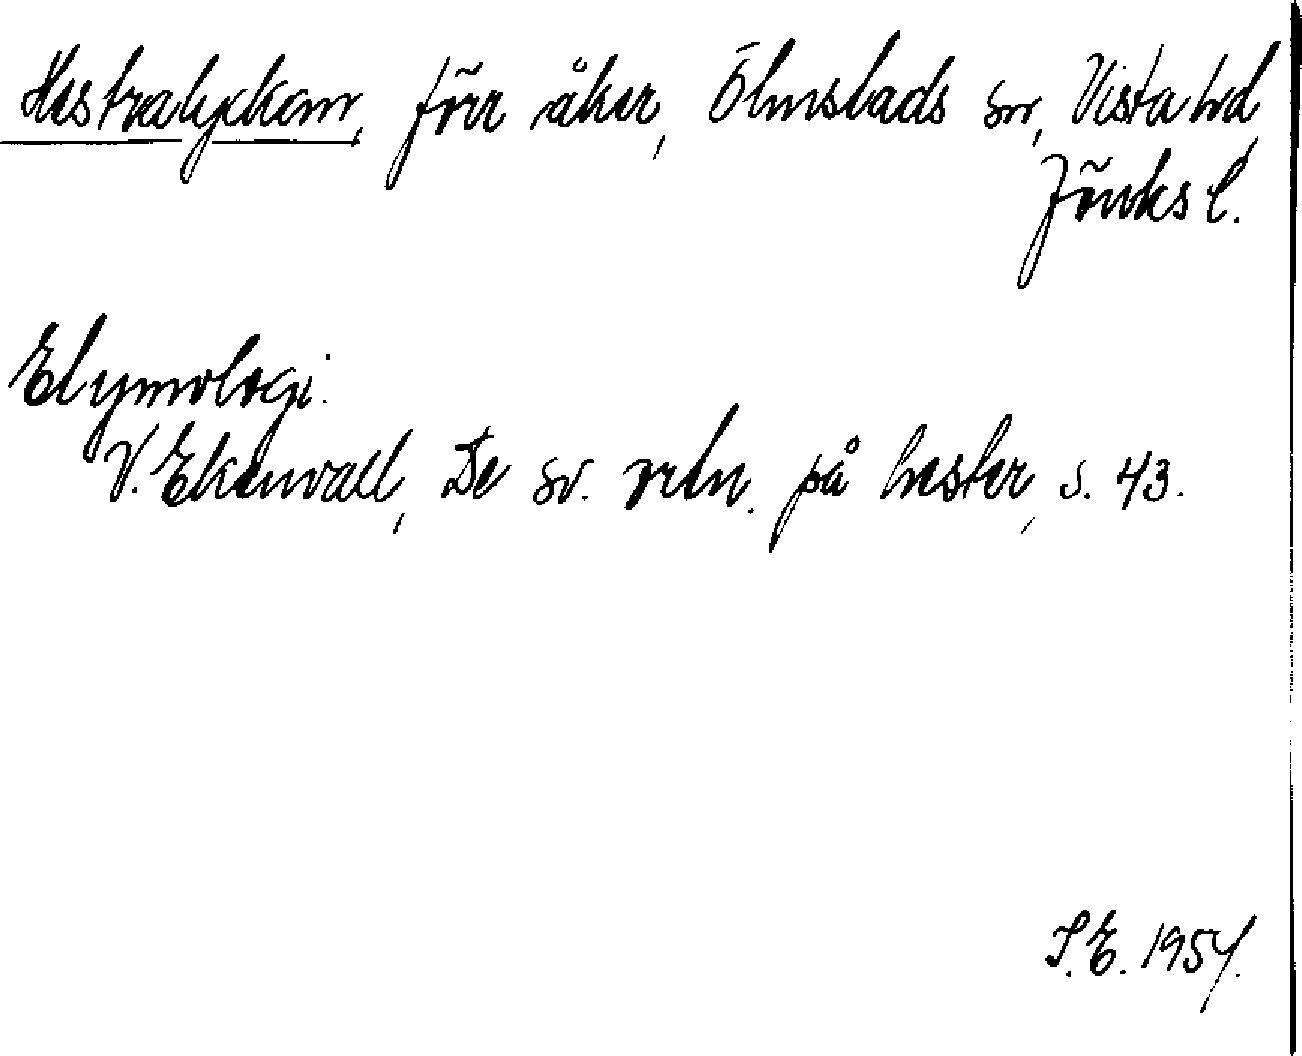 Hestralyckan, förr åker, Ölmstads sn, Vista hd,
Jönks l.
Etymologi.
V. Ekenvall, De sv. ortn. på hester, s. 43.
S.E. 1954.